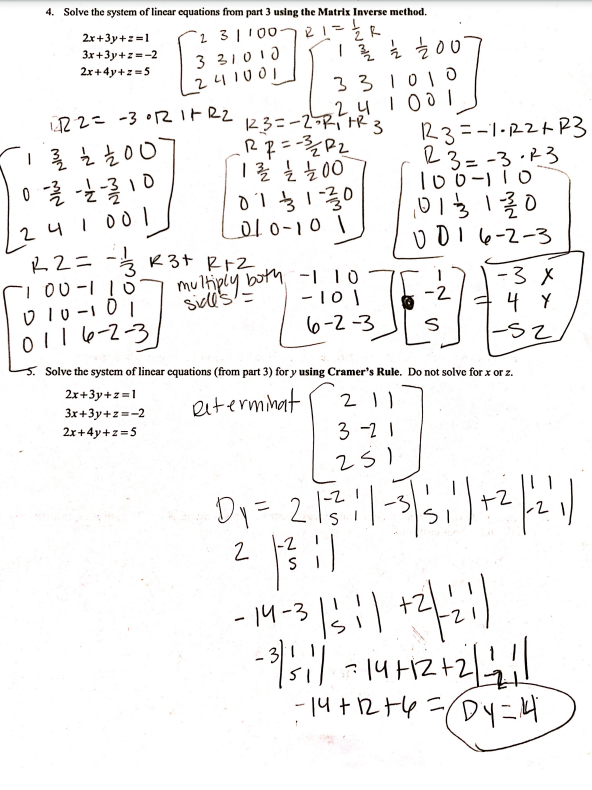 4. Solve the system of linear equations from part 3 using the Matrix Inverse method.
2x+3y+z=1
3x+3y+z=-2
2x+4y+z=5
2 3 1 1 0 0
3 3 1 0 1 0
2 4 1 0 0 1
R1 = 1/2 R
1 3/2 1/2 1/2 0 0
3 3 1 0 1 0
2 4 1 0 0 1
R2 = -3·R1+R2
1 3/2 1/2 1/2 0 0
0 -3/2 -1/2 -3/2 1 0
2 4 1 0 0 1
R3=-2·R1+R3
R2=-2/3R2
1 3/2 1/2 1/2 0 0
0 1 1/3 1 -2/3 0
0 1 0 -1 0 1
R3=-1·R2+R3
R3=-3·R3
1 0 0 -1 1 0
0 1 1/3 1 -2/3 0
0 0 1 6 -2 -3
R2= -1/3 R3+ R+2
1 0 0 -1 1 0
0 1 0 -1 0 1
0 1 1 6 -2 -3
multiply both
sides =
-1 1 0
-1 0 1
6 -2 -3
1
-2
5
=
-3 x
4 Y
-5 z
5. Solve the system of linear equations (from part 3) for y using Cramer's Rule. Do not solve for x or z.
2x+3y+z=1
3x+3y+z=-2
2x+4y+z=5
determinat
2 1 1
3 -2 1
2 5 1
Dy = 2 |-2 1 5 1| -3 |1 1 5 1| +2 |1 1 -2 1|
2 |-2 1 5 1|
-14-3 |1 1 5 1| +2 |1 1 -2 1|
-3 |1 1 5 1| -14+12+2 |1 1 -2 1|
-14+12+6 = Dy=4